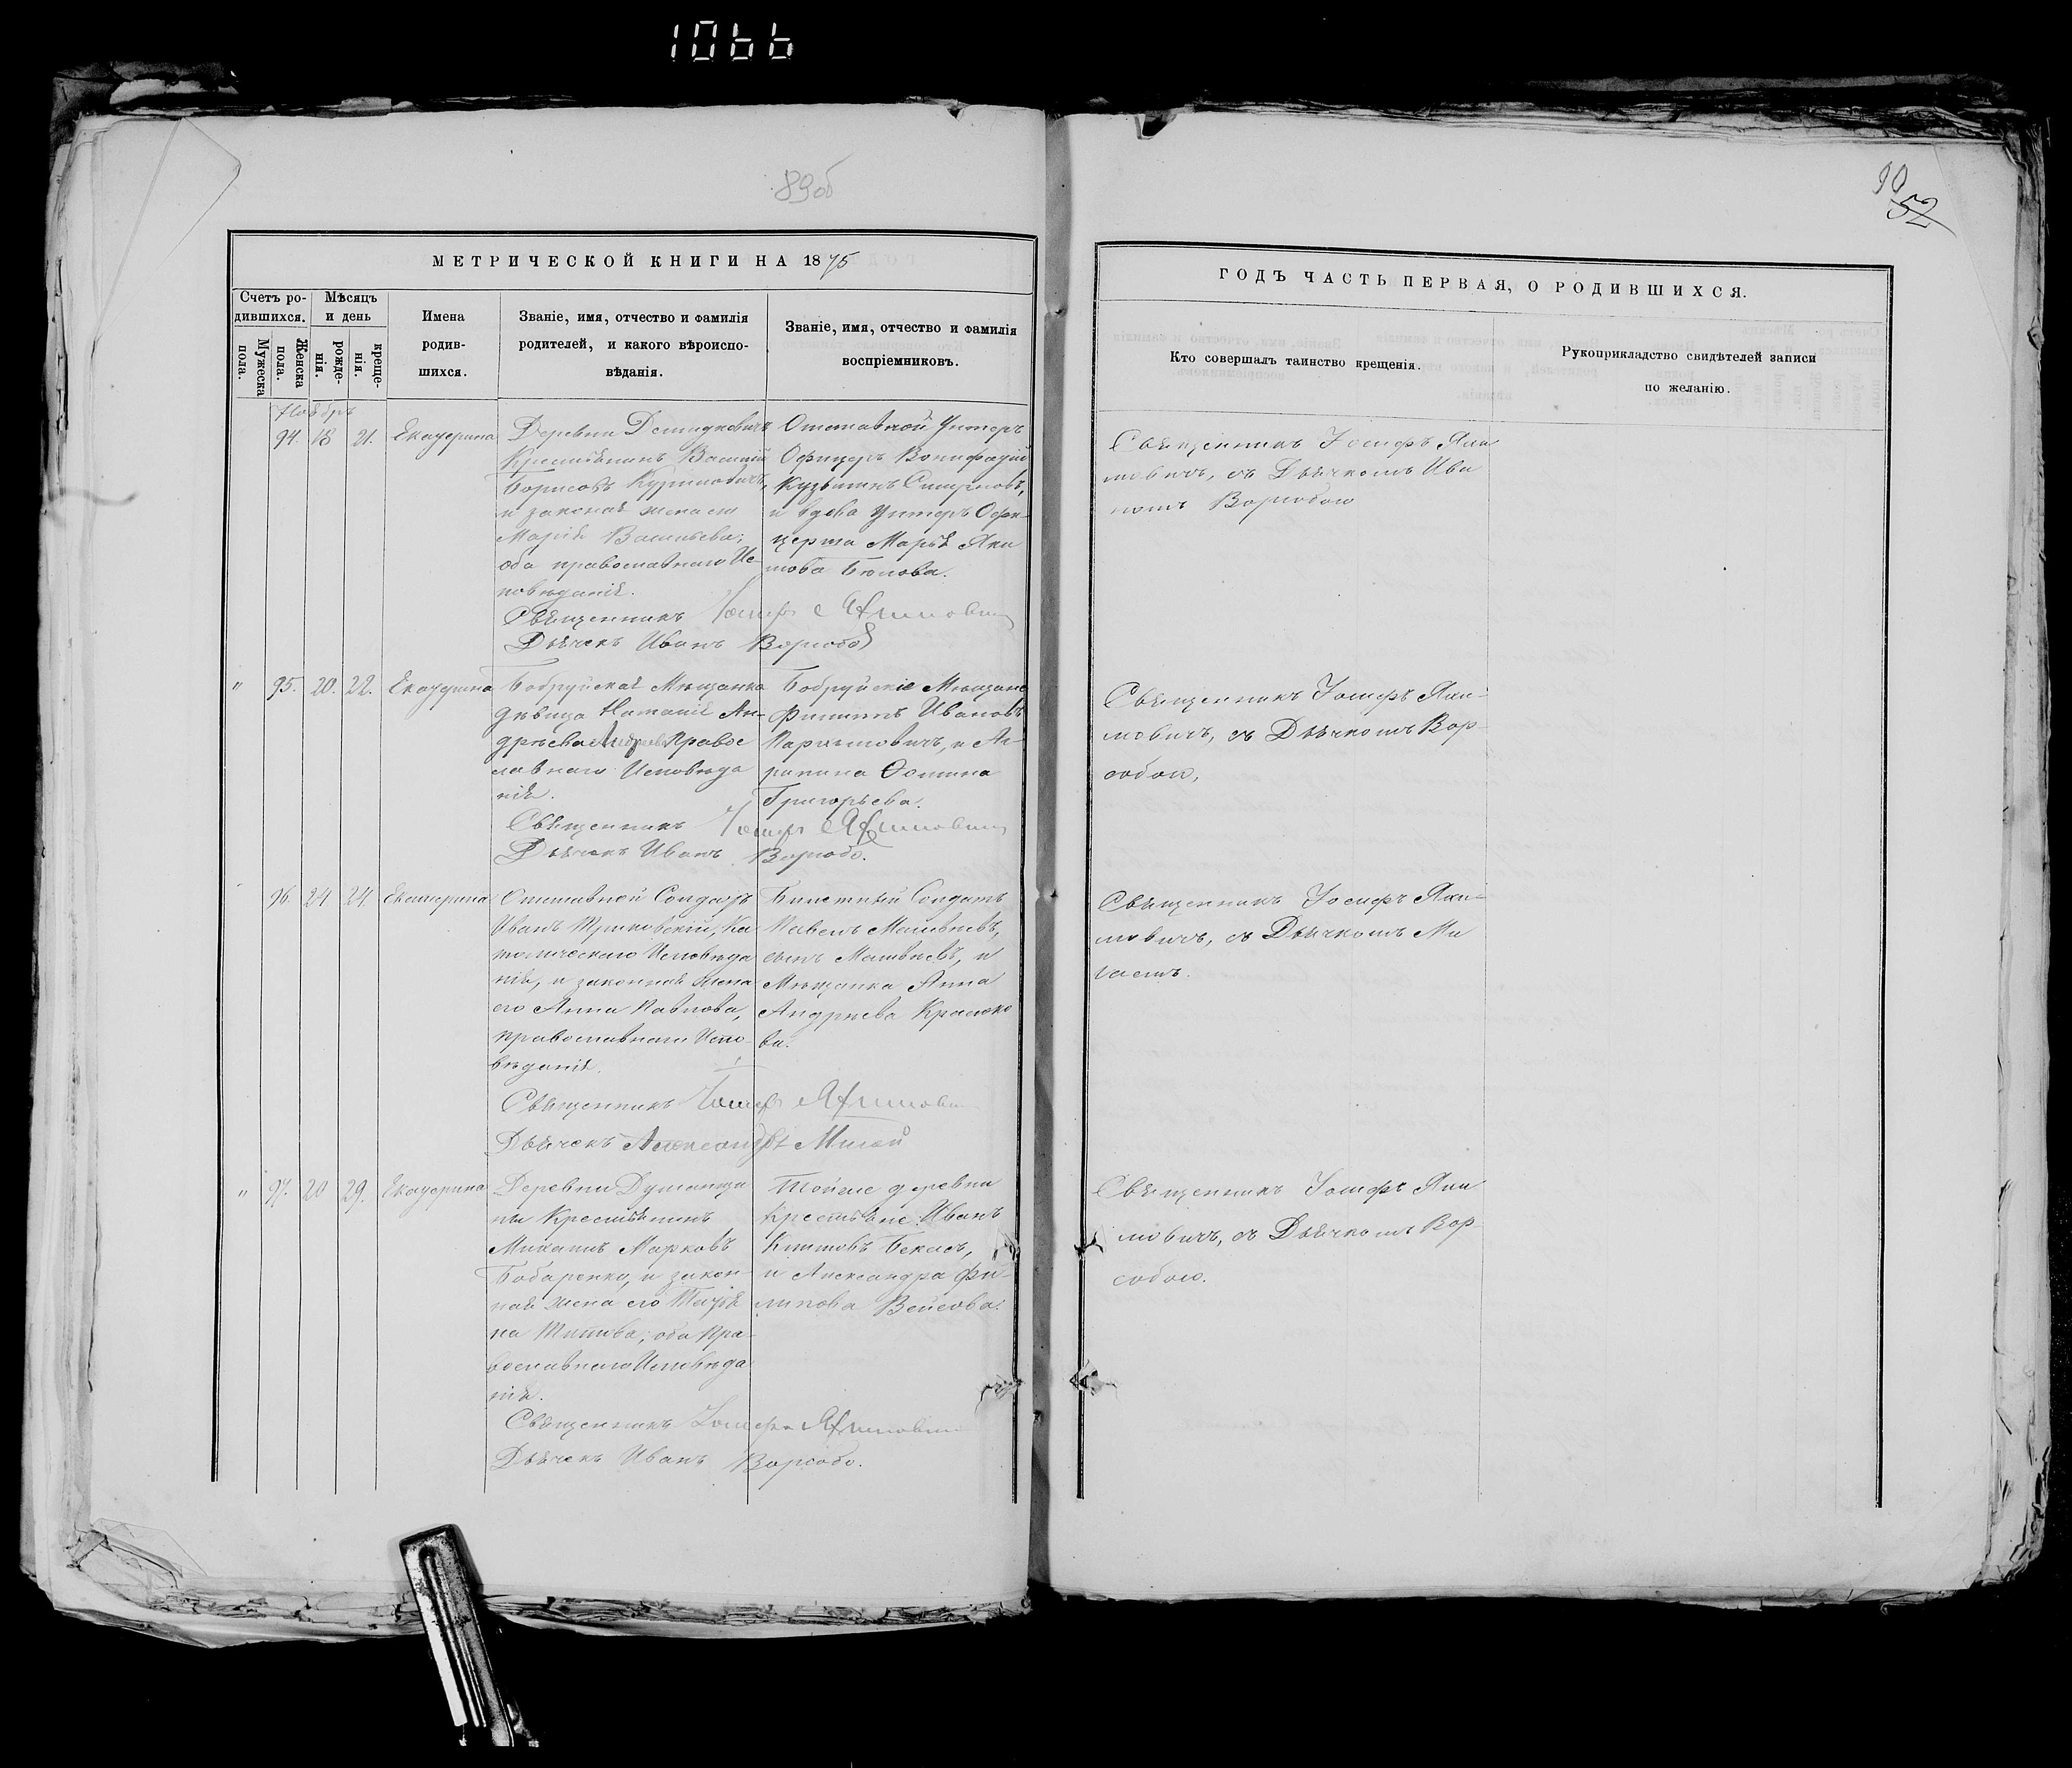 1066
89об
90
52
МЕТРИЧЕСКОЙ КНИГИ НА 1875
ГОДЪ ЧАСТЬ ПЕРВАЯ, О РОДИВШИХСЯ.
Счетъ ро-
дившихся.
Мужеска
пола.
Женска
пола.
Мѣсяцъ
и день
рожде-
нія.
креще-
нія.
Имена
родив-
шихся.
Званіе, имя, отчество и фамилія
родителей, и какого вѣроиспо-
вѣданія.
Званіе, имя, отчество и фамилія
воспріемниковъ.
Кто совершалъ таинство крещенія.
Рукоприкладство свидѣтелей записи
по желанію.
Ноябрь
94. 18 21. Екатерина
Деревни
Крестьянинъ Василій
Борисовъ
и законная жена его
Марія Васильева;
оба православнаго Ис-
повѣданія.
Священникъ Іосифъ Якимовичъ
Дьячекъ Иванъ
Отставной Унтеръ
Офицеръ Вонифатій
Кузьминъ Смирновъ,
и вдова Унтеръ Офи-
церша Марья Яки
мова
Священникъ Іосифъ Яки
мовичъ, съ Дьячкомъ Ива
номъ
" 95. 20. 22. Екатерина
Бобруйская Мѣщанка
дѣвица Наталія Ан-
дрѣева Правос
лавнаго Исповѣда
нія.
Священникъ Іосифъ Якимовичъ
Дьячекъ Иванъ
Бобруйскіе Мѣщане
Филиппъ Ивановъ
и Аг-
рипина Фомина
Григорьева.
Священникъ Іосифъ Яки-
мовичъ, съ Дьячкомъ Вор-
собою,
96. 24 24. Екатерина
Отставной Солдатъ
Иванъ Ка
толическаго Исповѣда
нія, и законная жена
его Анна Павлова,
православнаго Испо-
вѣданія.
Священникъ Іосифъ Якимовичъ
Дьячекъ Александръ Мигай
Билетный Солдатъ
Павелъ Матвѣевъ,
сынъ Матвѣевъ, и
Мѣщанка Анна
Андрѣева
ва.
Священникъ Іосифъ Яки-
мовичъ, съ Дьячкомъ Ми
гаемъ.
" 97. 20 29. Екатерина
Деревни
ны Крестьянинъ
Михаилъ Марковъ
Бобаренко, и закон-
ная жена его Татья
на Титова; оба Пра-
вославнаго Исповѣда
нія.
Священникъ Іосифъ Якимовичъ
Дьячекъ Иванъ
Тойже деревни
Крестьяне: Иванъ
Климовъ Бекасъ,
и Александра Фи-
липова
Священникъ Іосифъ Яки
мовичъ, съ Дьячкомъ Вор-
собою.